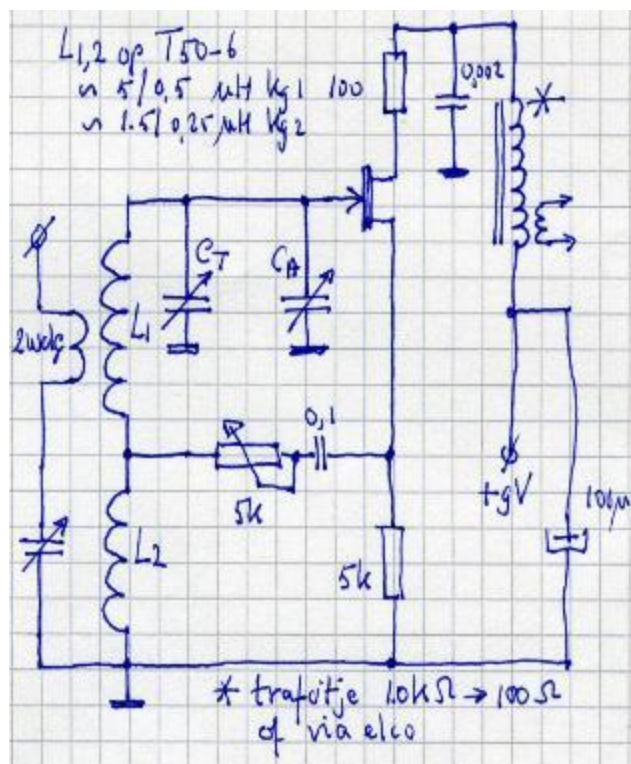 L1,2 op T50-6
∽ 5/0,5 µH kg1
∽ 1.5/0,25 µH kg2
100
0,002
*
CT
CA
2wdg
L1
0,1
5k
+9V
100µ
L2
5k
* trafootje 10kΩ → 100Ω
of via elco